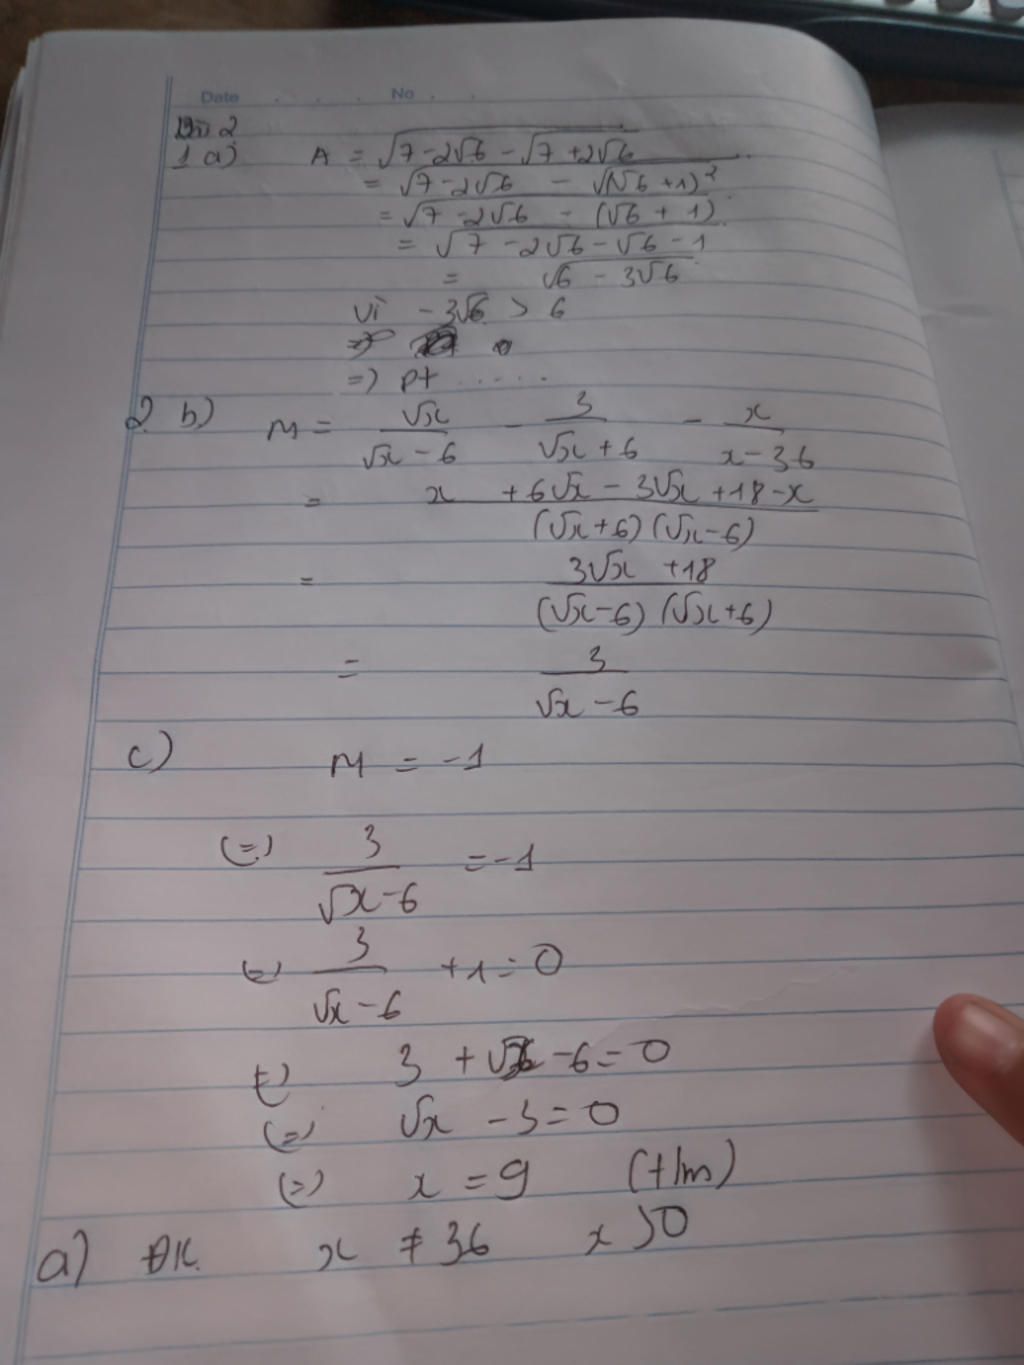 Date . . . . No . .
Bài 2
1 a) A = √7-2√6 - √7+2√6
= √7-2√6 - √(√6+1)²
= √7-2√6 - (√6+1)
= √7-2√6-√6-1
= √6-3√6
Vì -3√6 > 6
=>
=) pt .....
2 b) M = √x/(√x-6) - 3/(√x+6) - x/(x-36)
= (x +6√x - 3√x +18-x)/((√x+6)(√x-6))
= (3√x +18)/((√x-6)(√x+6))
= 3/(√x-6)
c) M = -1
(=) 3/(√x-6) = -1
(=) 3/(√x-6) +1=0
(=) 3 + √x -6=0
(=) √x -3=0
(=) x = 9 (t/m)
a) ĐK x ≠ 36 x >0